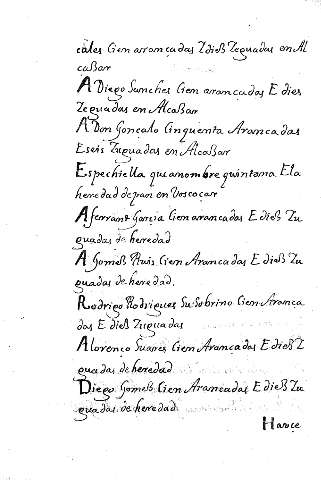 cales Cien arrançadas E dieß Yeguadas en Al
caßar
A Diego Sanches Cien arrancadas E dies
Yeguadas en Alcaßar
A Don Gonçalo Cinquenta Arancadas
E seis Yuguadas en Alcaßar
Espechiella qua a nombre quintana E la
heredad de pan en Voscoçar
A ferrant Garçia Cien arancadas E dieß Yu
guadas de heredad
A Gomeß Ruis Cien Arancadas E dieß Yu
guadas de heredad.
Rodrigo Rodrigues Su Sobrino Cien Aranca
das E dieß Yuguadas
A lorenço Suares Cien Arancadas E dieß Y
uguadas de heredad
Diego Gomeß Cien Arancadas E dieß Yu
guadas de heredad